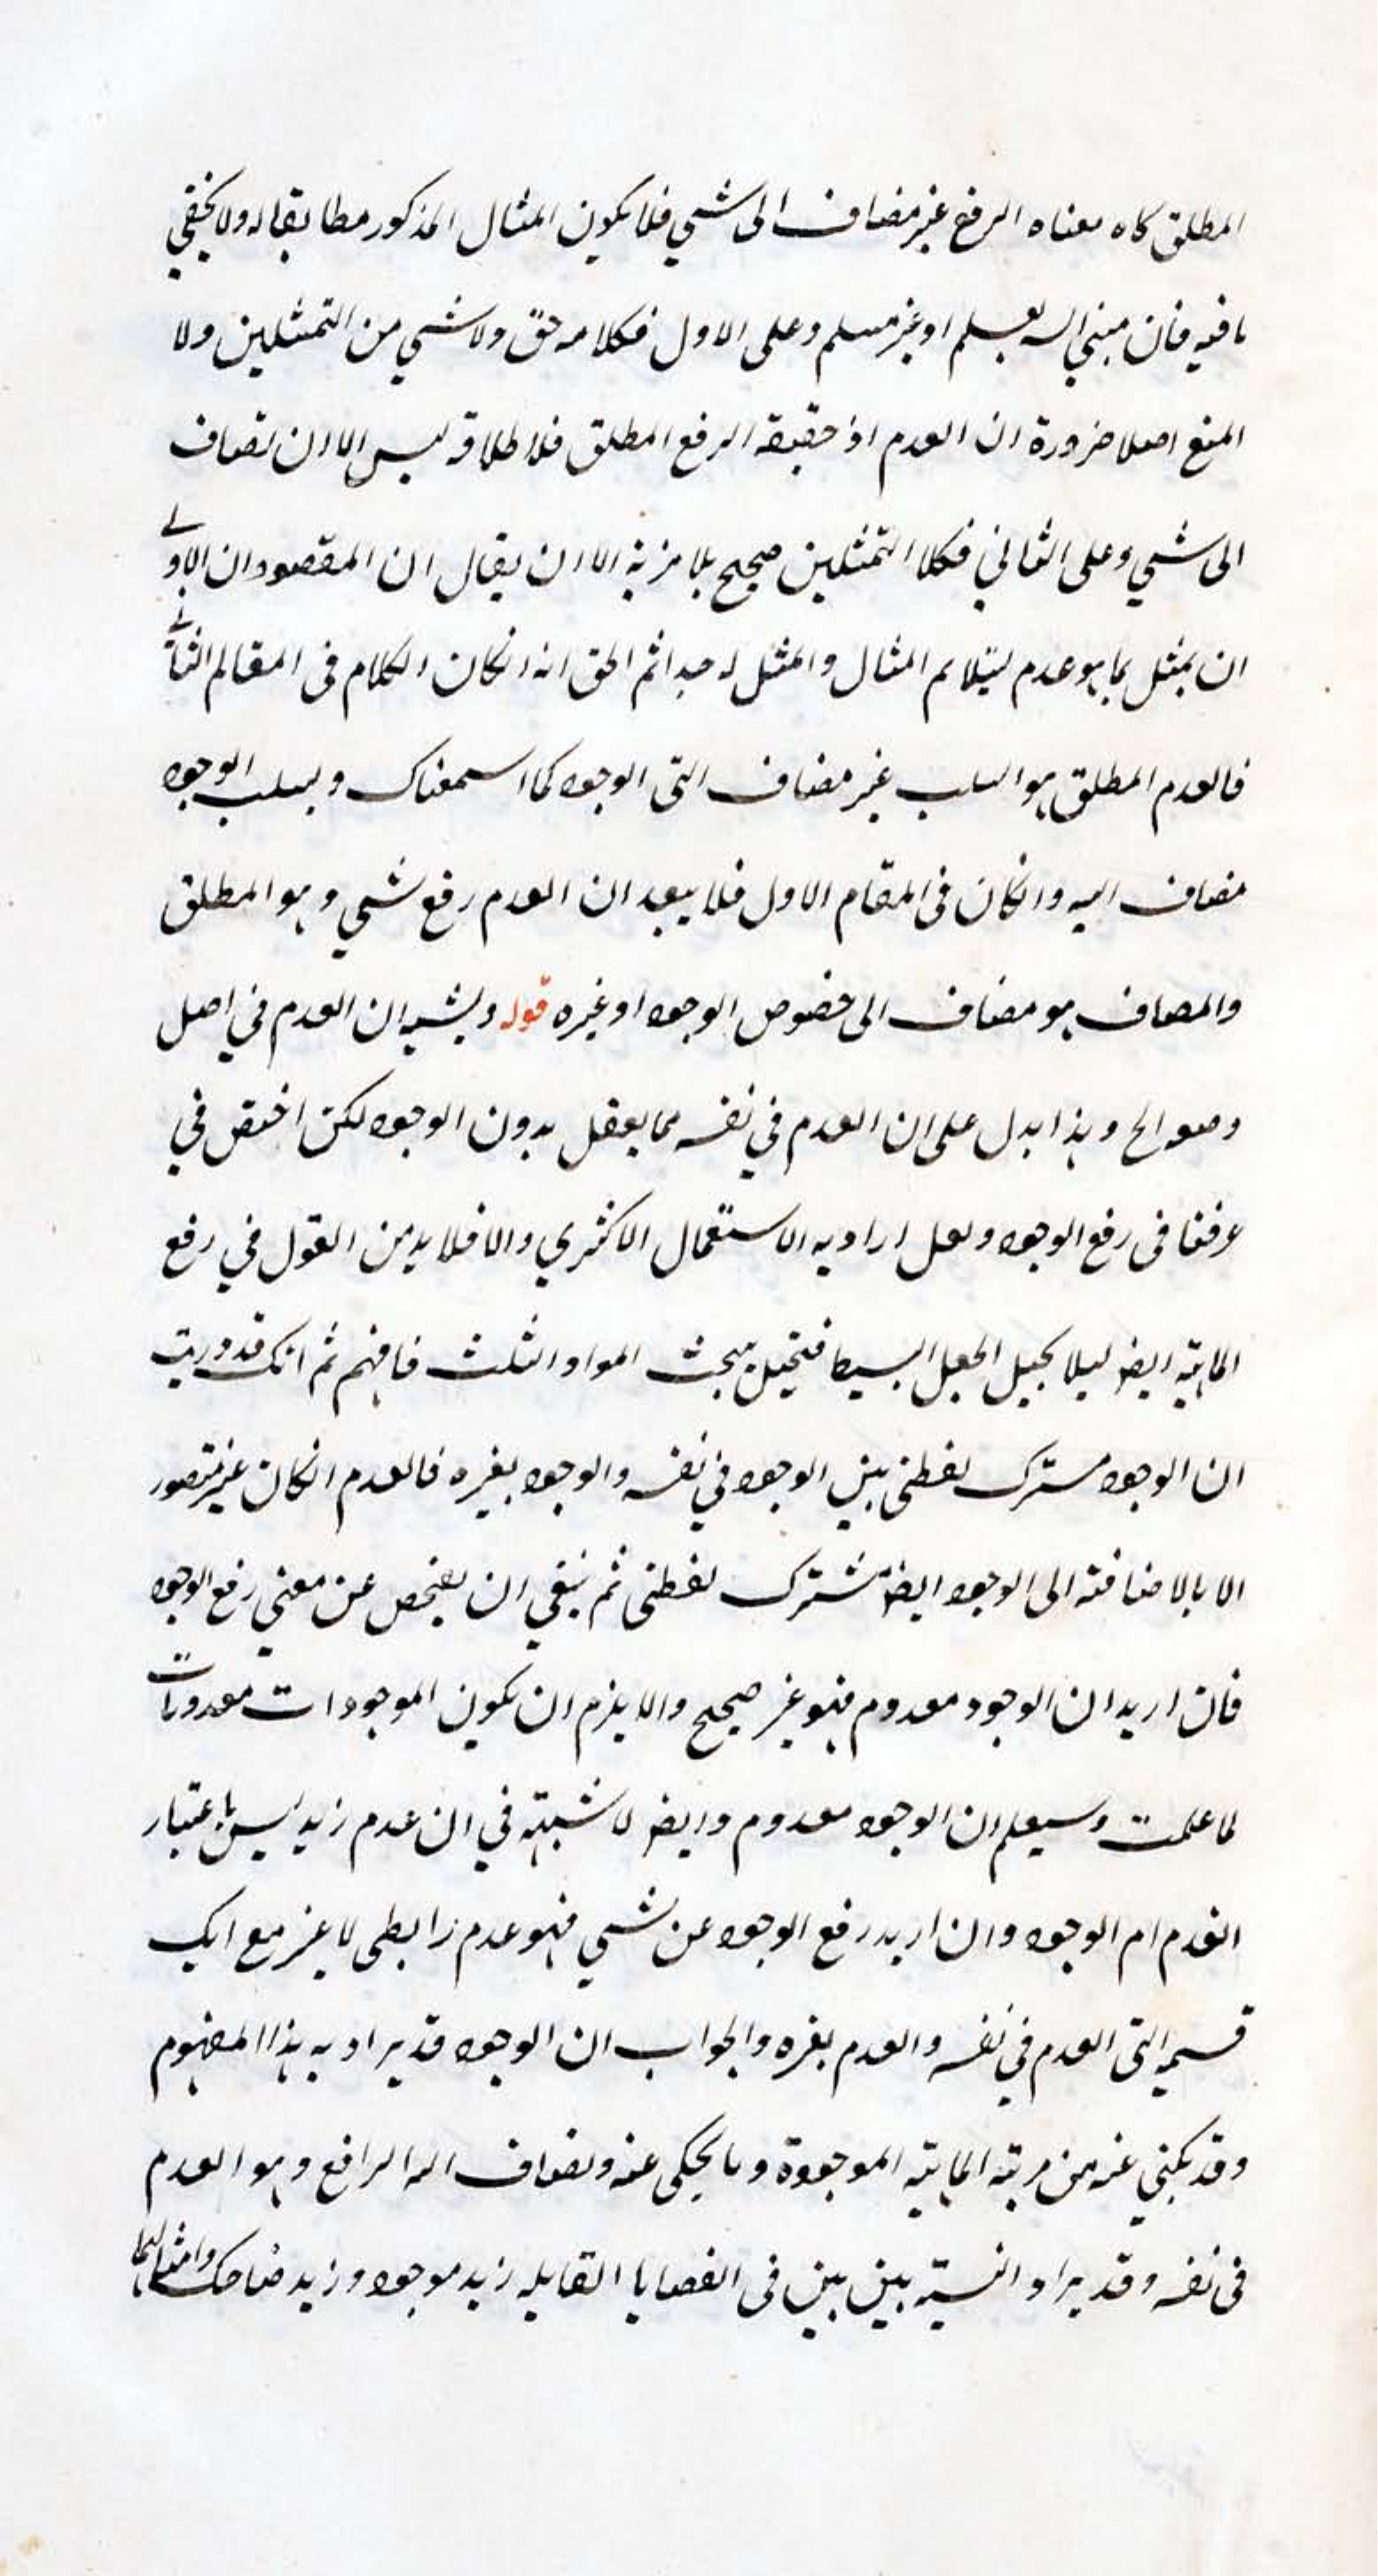 المطلق كاه معناه الرفع غير مضاف الى شي فلا يكون المثال المذكور مطابقا له ولا يخفي
ما فيه فان مبني السه يعلم او غير مسلم وعلى الاول فكلامه حق ولا شي من التمثيلين ولا
المنع اصلا ضرورة ان العدم اذ حقيقة الرفع المطلق فلا طلاقه ليس الا ان تضاف
الى شي وعلى الثاني فكلا التمثيلين صحيح بلا مزية الا ان يقال ان المقصود ان الاولے
ان يمثل بما هو عدم ليتلايم المثال والممثل له جدا ثم الحق انه انكان الكلام في المقام الثانے
فالعدم المطلق هو السلب غير مضاف التى الوجود كما اسمعناك و بسلب الوجود
مضاف اليه وانكان في المقام الاول فلا يبعد ان العدم رفع شي وهو المطلق
والمضاف هو مضاف الى خصوص الوجود او غيره قوله ويشبه ان العدم في اصل
وضعه الخ وهذا يدل على ان العدم في نفسه مما يعقل بدون الوجود لكن اختص في
عرفنا في رفع الوجود ولعل اراد به الاستعمال الاكثري والا فلا بد من القول في رفع
الماهية ايضا ليلا يحيل الجعل البسيط فتختل مبحث المواد الثلث فافهم ثم انك قد دريت
ان الوجود مشترك لفظى بين الوجود في نفسه والوجود بغيره فالعدم انكان غير متصور
الا بالاضافة الى الوجود ايضا مشترك لفظى ثم ينبغي ان يفحص عن معني رفع الوجود
فان اريد ان الوجود معدوم فهو غير صحيح والا يلزم ان تكون الموجودات معدومات
لما علمت وسيعلم ان الوجود معدوم وايضا لا شبهة في ان عدم زيد ليس باعتبار
انعدام الوجود وان اريد رفع الوجود عن شي فهو عدم رابطى لا غير مع انك
قسميه التى العدم في نفسه والعدم بغيره والجواب ان الوجود قد يراد به هذا المفهوم
وقد يكني عنه من مرتبة الماهية الموجودة وما يحكى عنه ويضاف اله الرافع وهو العدم
في نفسه وقد يراد النسبة بين بين في القضايا القايلة زيد موجود وزيد ضاحك وامثالهما